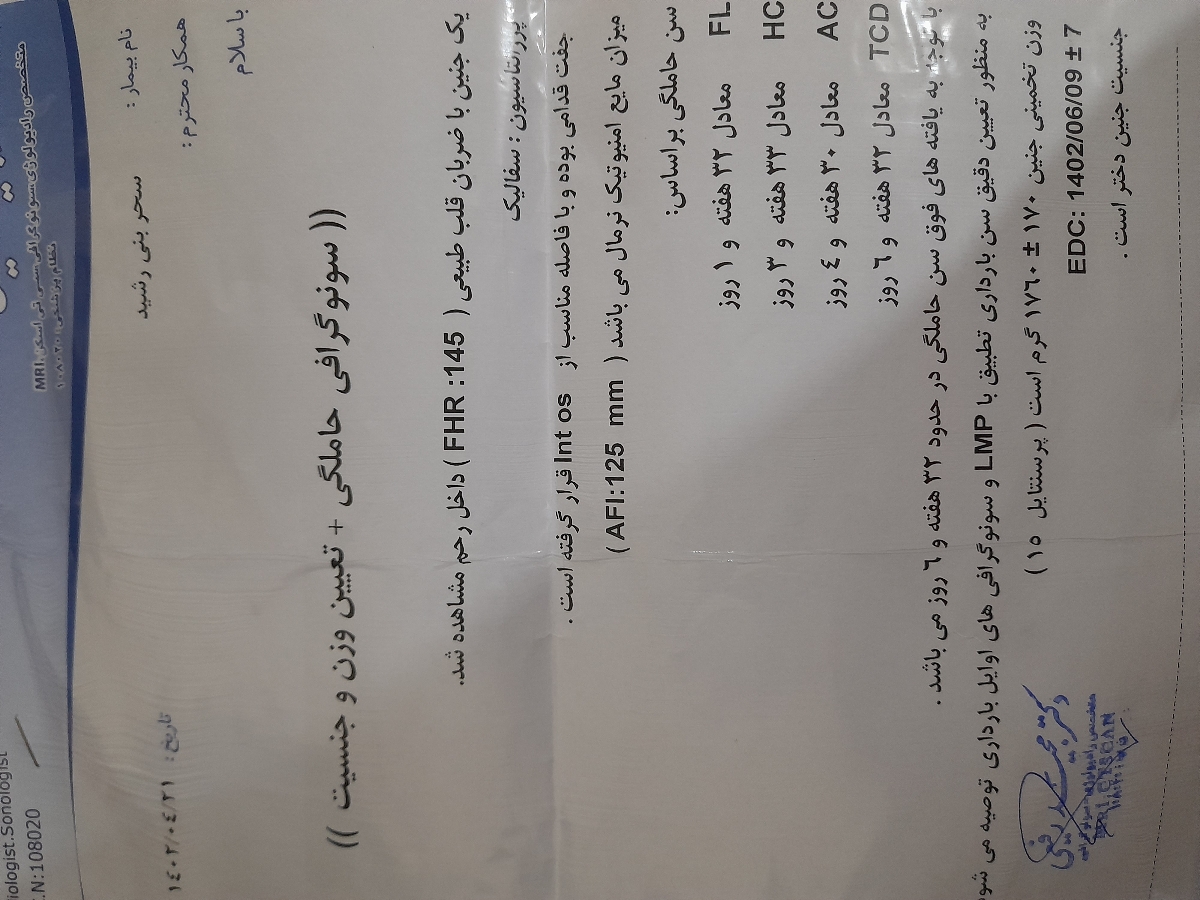 iologist.Sonologist
.N:108020
متخصص رادیولوژی سونوگرافی سی تی اسکن MRI
نظام پزشکی: ۱۰۸۰۲۰
نام بیمار : سحر بنی رشید
تاریخ: ۱٤۰۲/۰٤/۲۱
همکار محترم :
با سلام
(( سونوگرافی حاملگی + تعیین وزن و جنسیت ))
یک جنین با ضربان قلب طبیعی ( FHR :145 ) داخل رحم مشاهده شد.
پرزنتاسیون : سفالیک
جفت قدامی بوده و با فاصله مناسب از Int os قرار گرفته است .
میزان مایع امنیوتیک نرمال می باشد ( AFI:125 mm )
سن حاملگی بر اساس:
FL معادل ۳۲ هفته و ۱ روز
HC معادل ۳۳ هفته و ۳ روز
AC معادل ۳۰ هفته و ٤ روز
TCD معادل ۳۲ هفته و ٦ روز
با توجه به یافته های فوق سن حاملگی در حدود ۳۲ هفته و ٦ روز می باشد .
به منظور تعیین دقیق سن بارداری تطبیق با LMP و سونوگرافی های اوایل بارداری توصیه می شود
وزن تخمینی جنین ۱۷۰ ± ۱۷٦۰ گرم است ( پرسنتایل ۱٥ )
EDC: 1402/06/09 ± 7
جنسیت جنین دختر است .